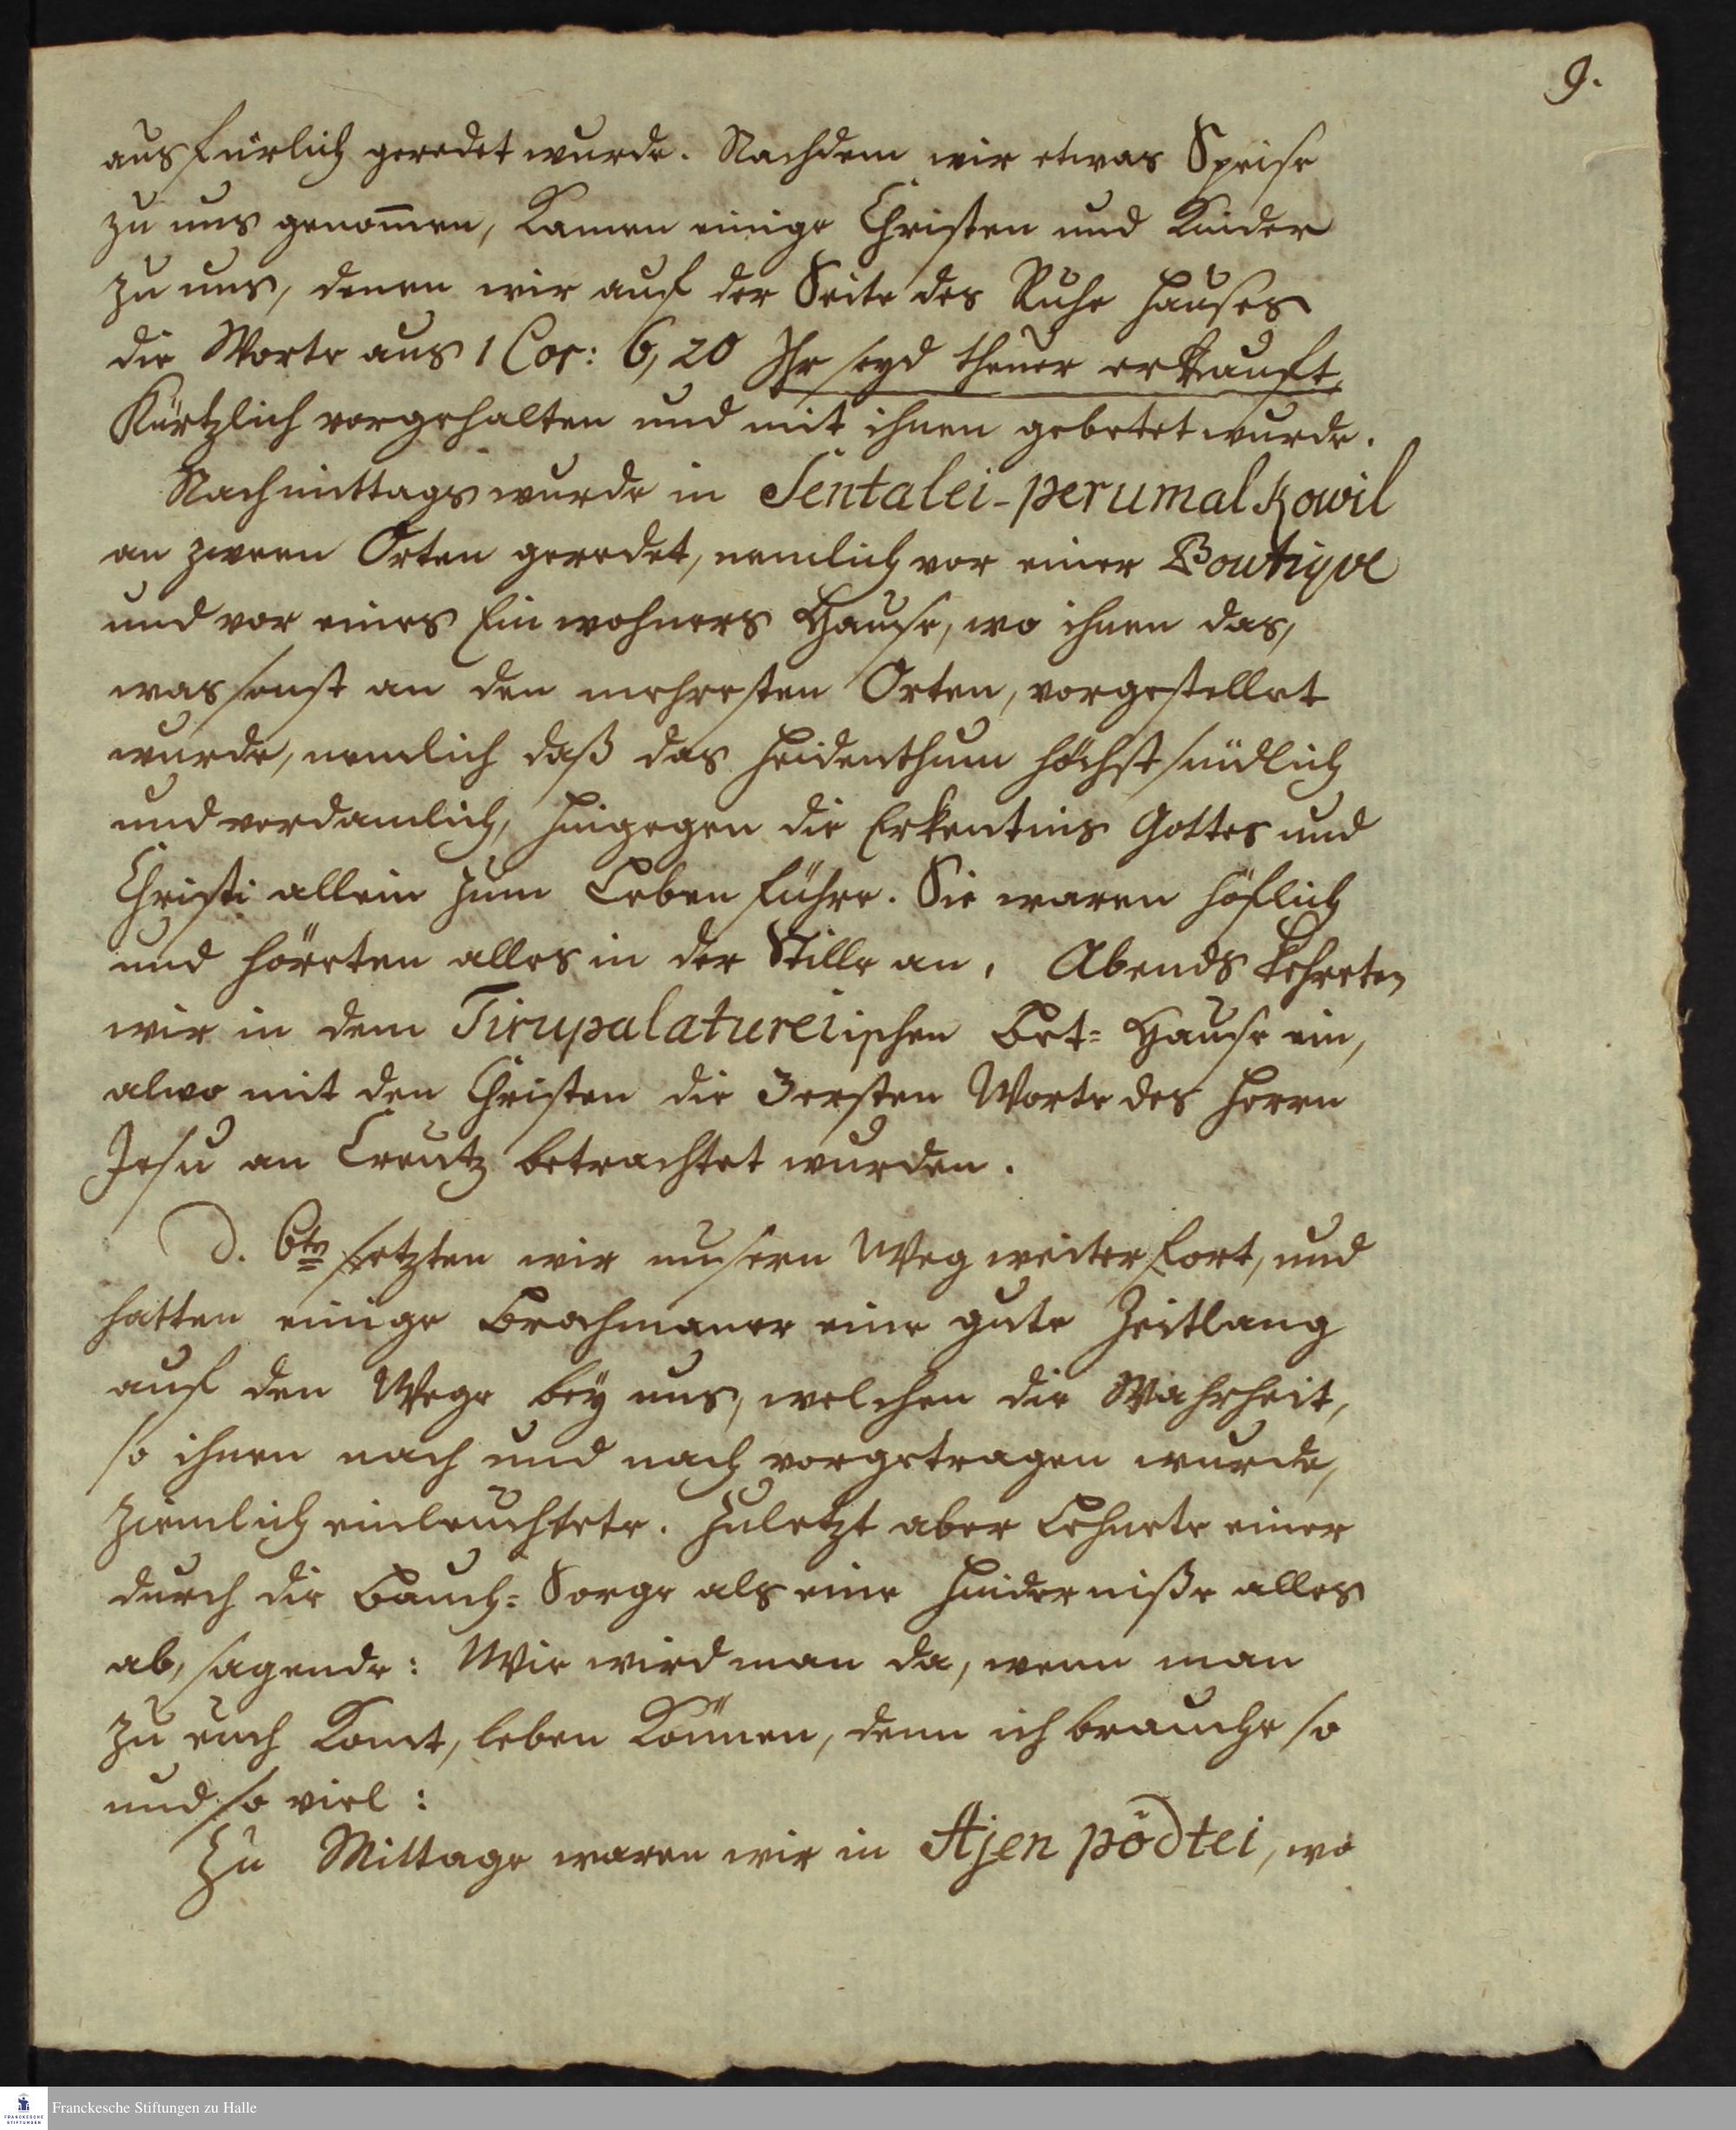 9.
ausfürlich geredet wurde. Nachdem wir etwas Speise
zu uns genom̅en, kamen einige Christen und Kinder
zu uns, denen wir auf der Seite des Ruhe Hauses
die Worte aus 1 Cor: 6, 20 Ihr seyd theuer erkauft,
kürtzlich vorgehalten und mit ihnen gebetet wurde.
Nachmittags wurde in Sentalei-perumal kowil
an zween Orten geredet, nemlich vor einer Boutique
und vor eines Einwohners Hause, wo ihnen das,
was sonst an den mehresten Orten, vorgestellet
wurde, nemlich daß das Heidenthum höchst sündlich
und verdamlich, hingegen die Erkentnis Gottes und
Christi allein zum Leben führe. Sie waren höflich
und höreten alles in der Stille an. Abends kehreten
wir in dem Tirupalatureiischen Bet-Hause ein,
alwo mit den Christen die 3 ersten Worte des Herrn
Jesu an Creutz betrachtet wurden.
d. 6ten setzten wir unsern Weg weiter fort, und
hatten einige Brachmaner eine gute Zeitlang
auf den Wege bey uns, welchen die Wahrheit,
so ihnen nach und nach vorgetragen wurde,
ziemlich einleuchtete. Zuletzt aber lehnete einer
durch die Bauch-Sorge als eine Hinderniße alles
ab, sagende: Wie wird man da, wenn man
zu euch komt, leben können, denn ich brauche so
und so viel:
Zu Mittage waren wir in Ajen pödtei, wo
Franckesche Stiftungen zu Halle
FRANCKESCHE
STIFTUNGEN